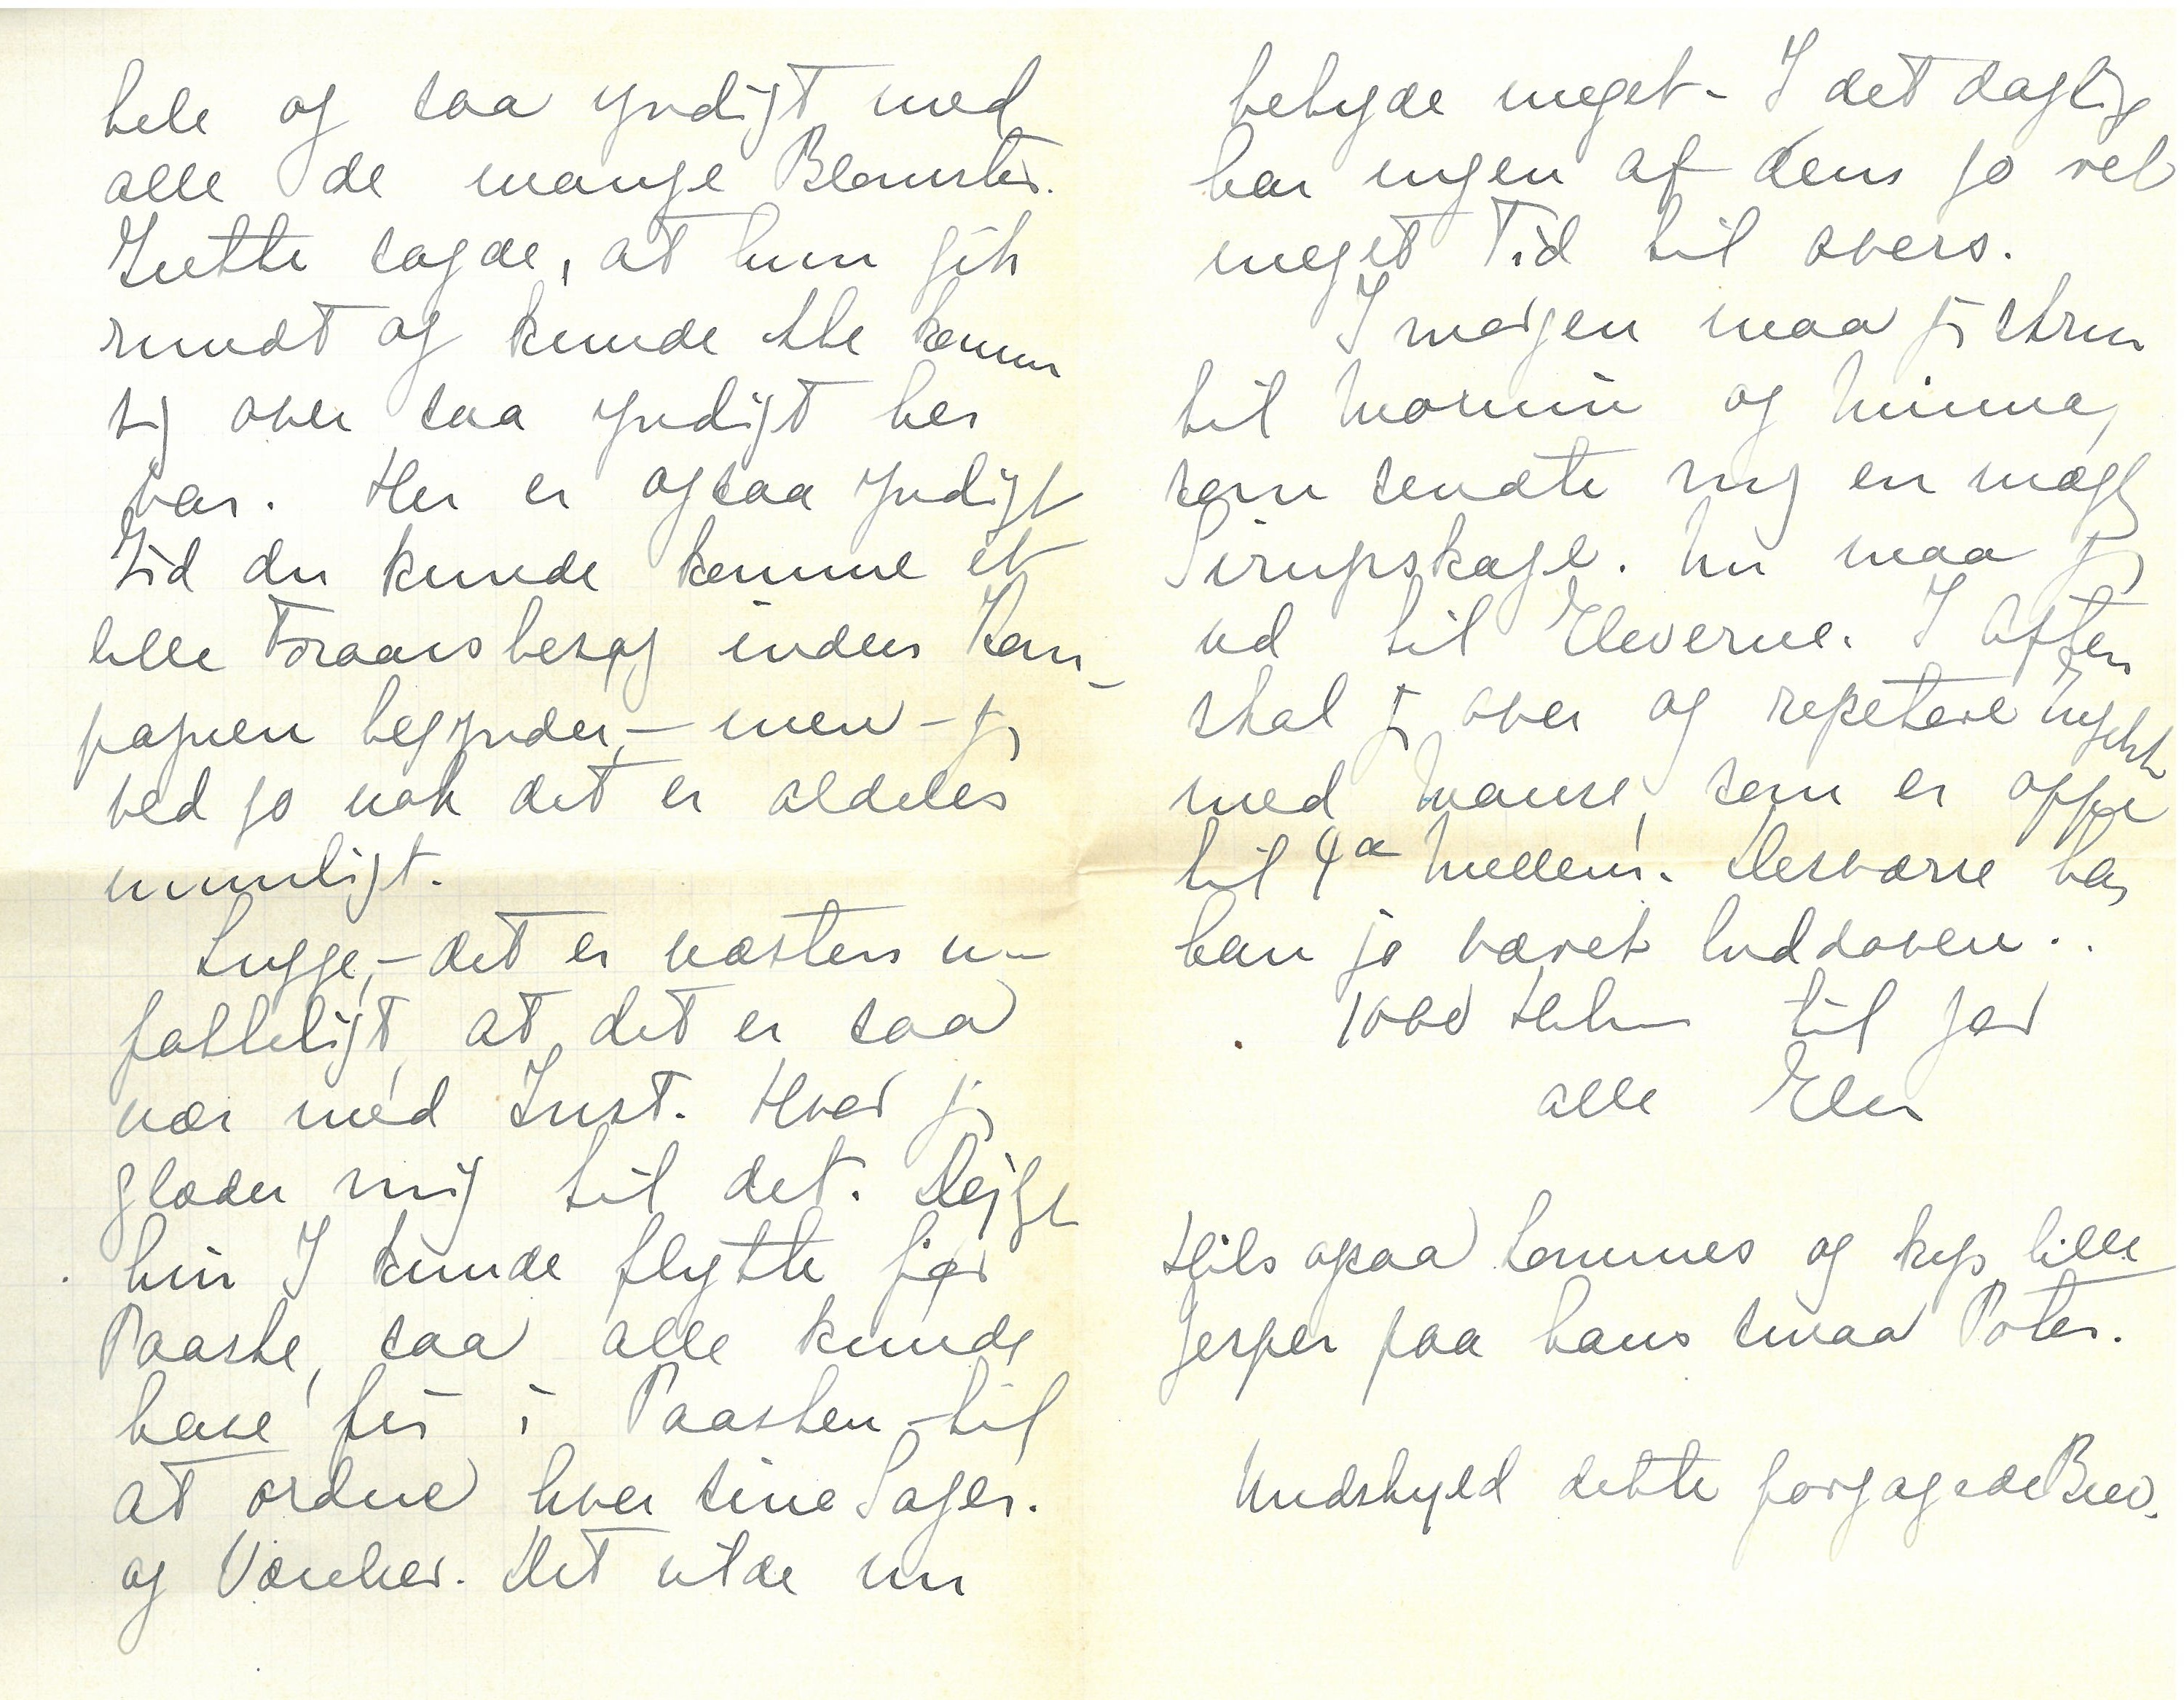 hele og saa yndigt med
alle de mange Blomster.
Jutte sagde, at hun gik
rundt og kunde ikke komme
sig over saa yndigt her
var. Her er ogsaa yndigt
Gid du kunde komme et
lille Foraarsbesøg inden Kam-
pagnen begynder, – men – jeg
ved jo nok det er aldeles
umuligt.
Lugge, – det er næsten u-
fatteligt, at det er saa
nær med Just. Hvor jeg
glæder mig til det. Dejligt
hvis I kunde flytte før
Paaske, saa alle kunde
have fri i Paasken til
at ordne hver sine Sager.
og Værelser. Det vilde nu
betyde meget – I det daglige
har ingen af dem jo vel
meget Tid til overs.
I morgen maa jeg skrive
til Mornine og Minna,
som sendte mig en mægtig
Sirupskage. Nu maa jeg
ud til Eleverne. I Aften
skal jeg over og repetere Engelsk
med Manse, som er oppe
til 4de Mellem. Desværre har
han jo været luddoven..
1000 Hilsner til jer
alle Elle
Hils ogsaa Lommes og kys lille
Jesper paa hans smaa Poter.
Undskyld dette forjagede Brev.